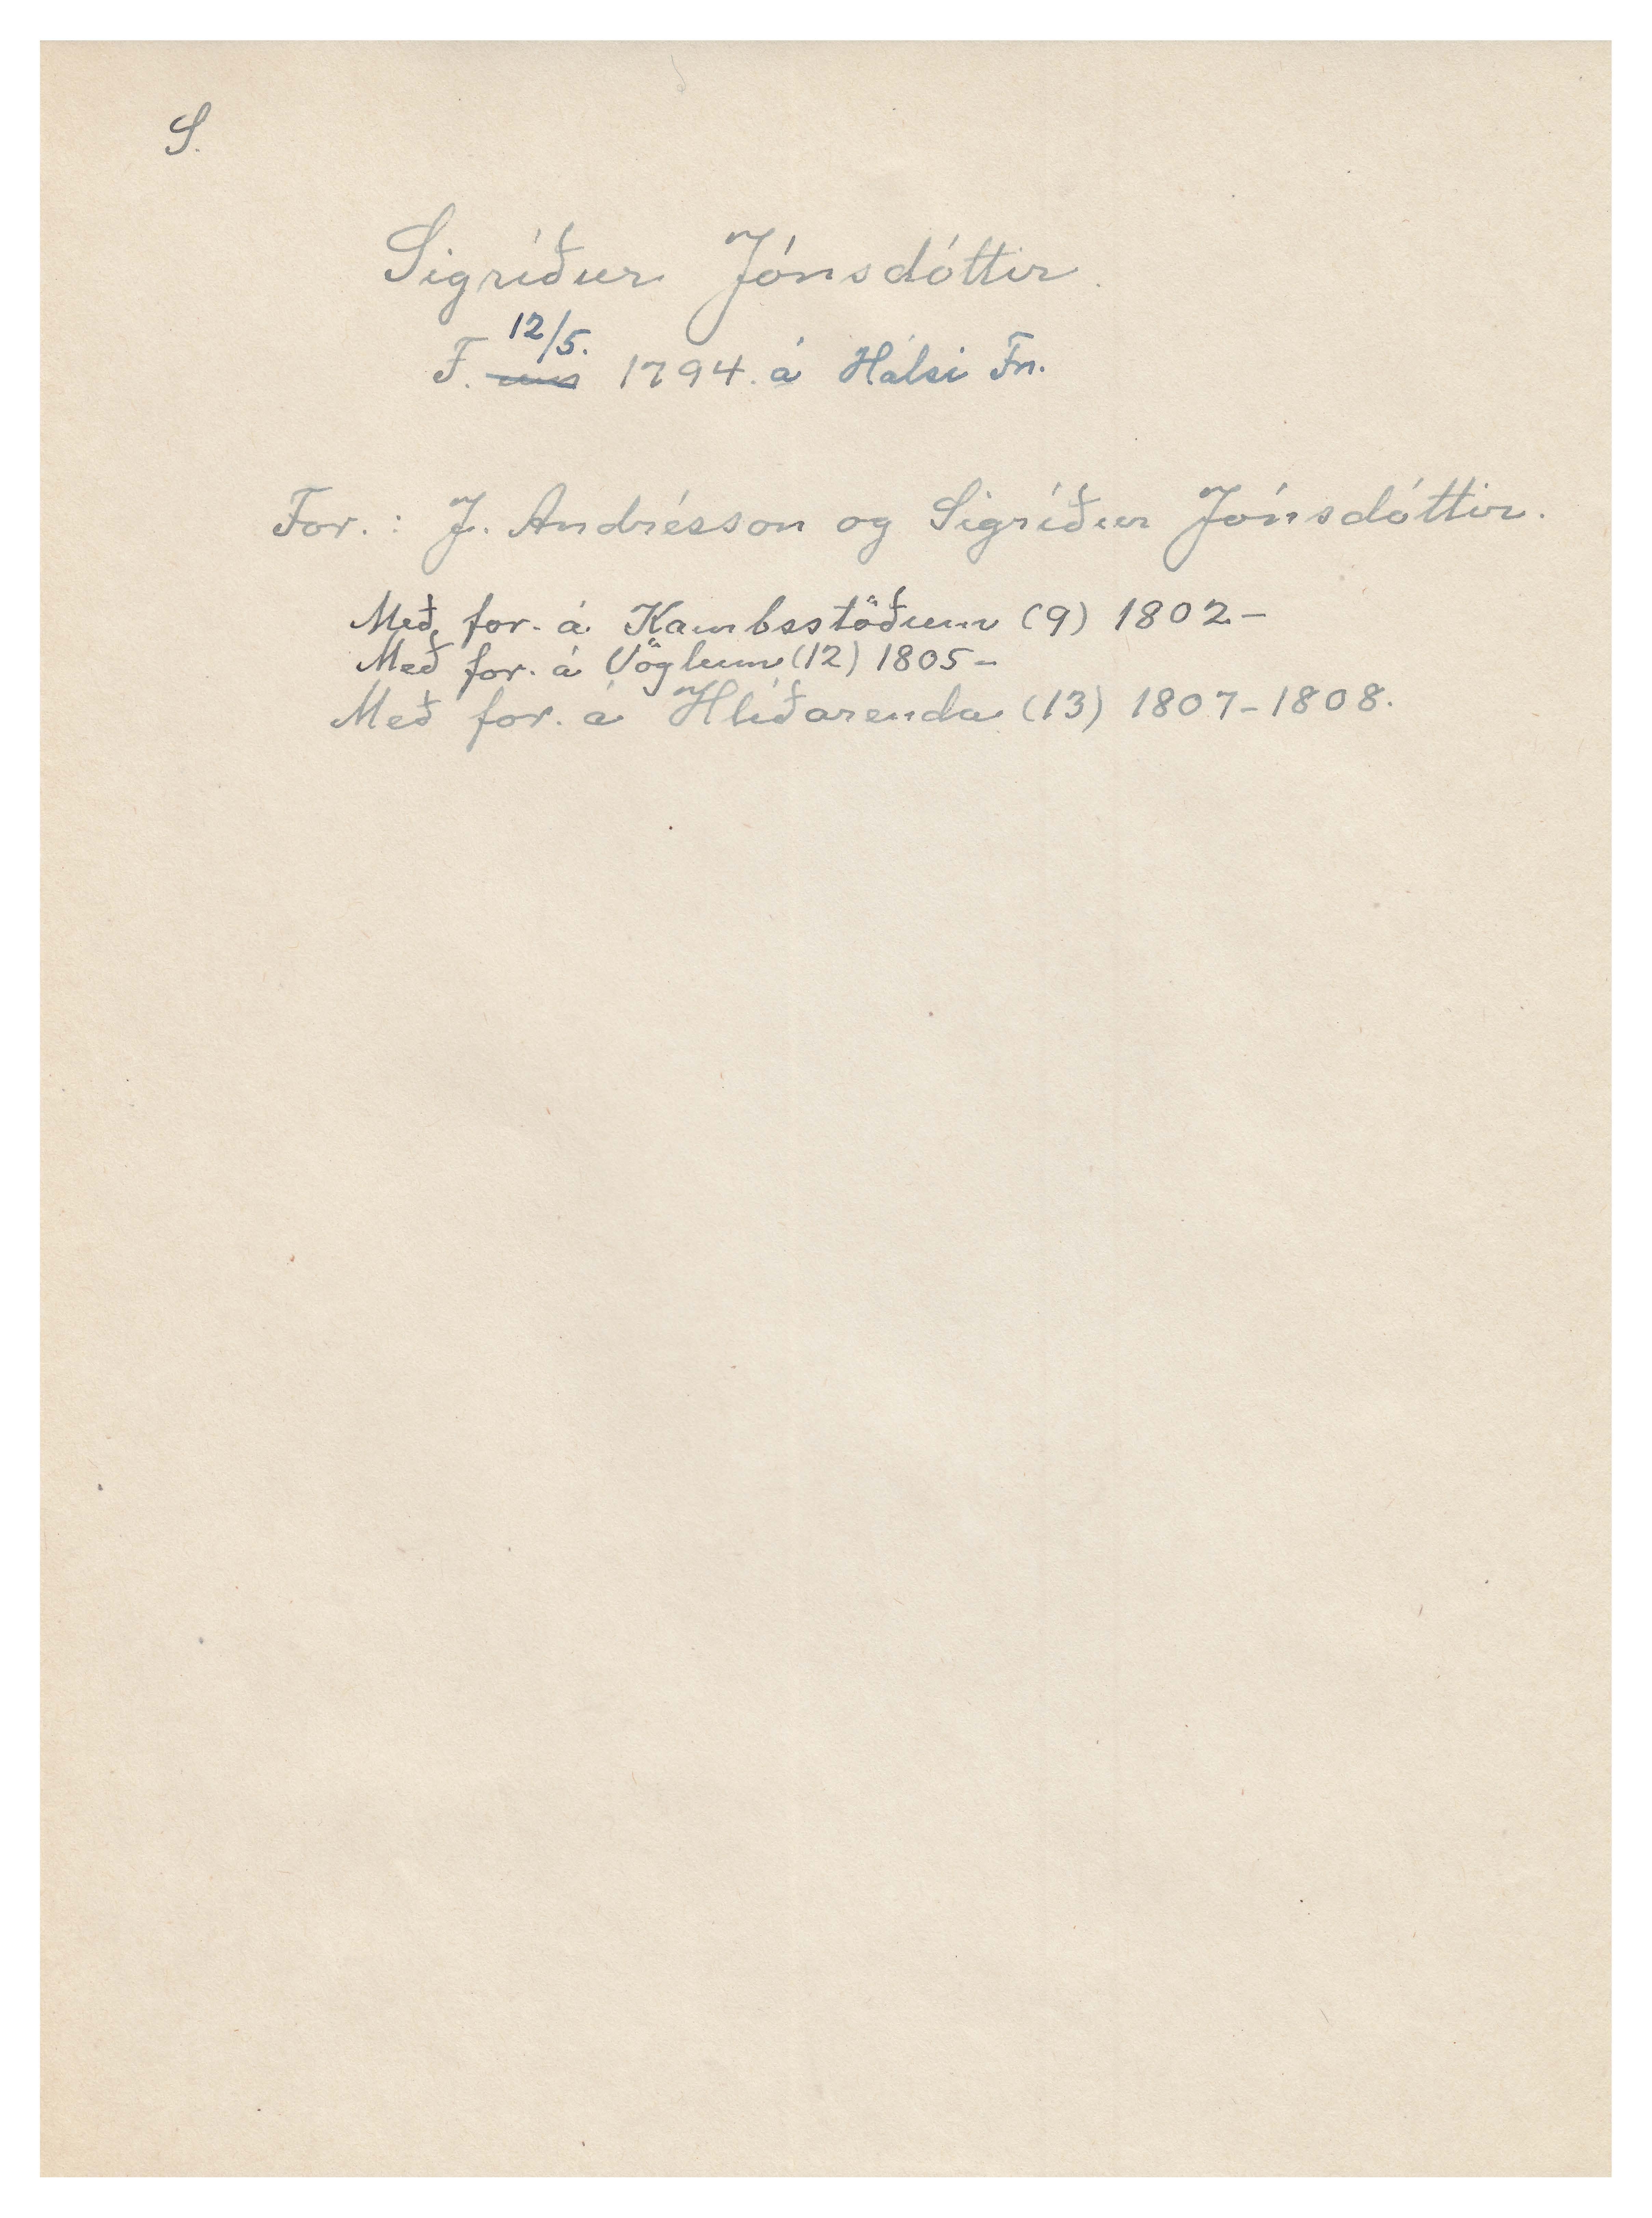 S.
Sigríður Jónsdóttir.
12/5.
F. um 1794. á Hálsi Fn.
For.: J. Andrésson og Sigríður Jónsdóttir.
Með for. á Kambsstöðum (9) 1802-
Með for. á Vöglum (12) 1805-
Með for. á Hlíðarenda (13) 1807-1808.